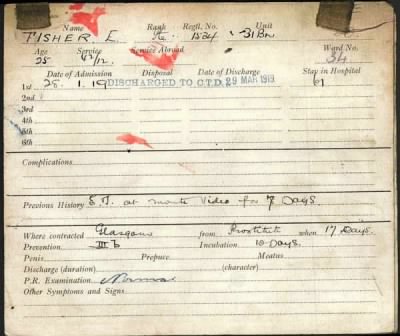 Name Rank Regtl. No. Unit
FISHER E. Pte. 1524 31 Bn
Age Service Service Abroad Ward No.
25 42/12. 34
Date of Admission Disposal Date of Discharge Stay in Hospital
1st 28. 1. 19 DISCHARGED TO C.T.D. 29 MAR 1919 61
2nd
3rd
4th
5th
6th
Complications
Previous History S.T. at Monte Video for 7 Days.
Where contracted Glasgow from Prostitute when 17 Days.
Prevention III b Incubation 10 Days.
Penis Prepuce Meatus
Discharge (duration) (character)
P.R. Examination Normal
Other Symptoms and Signs